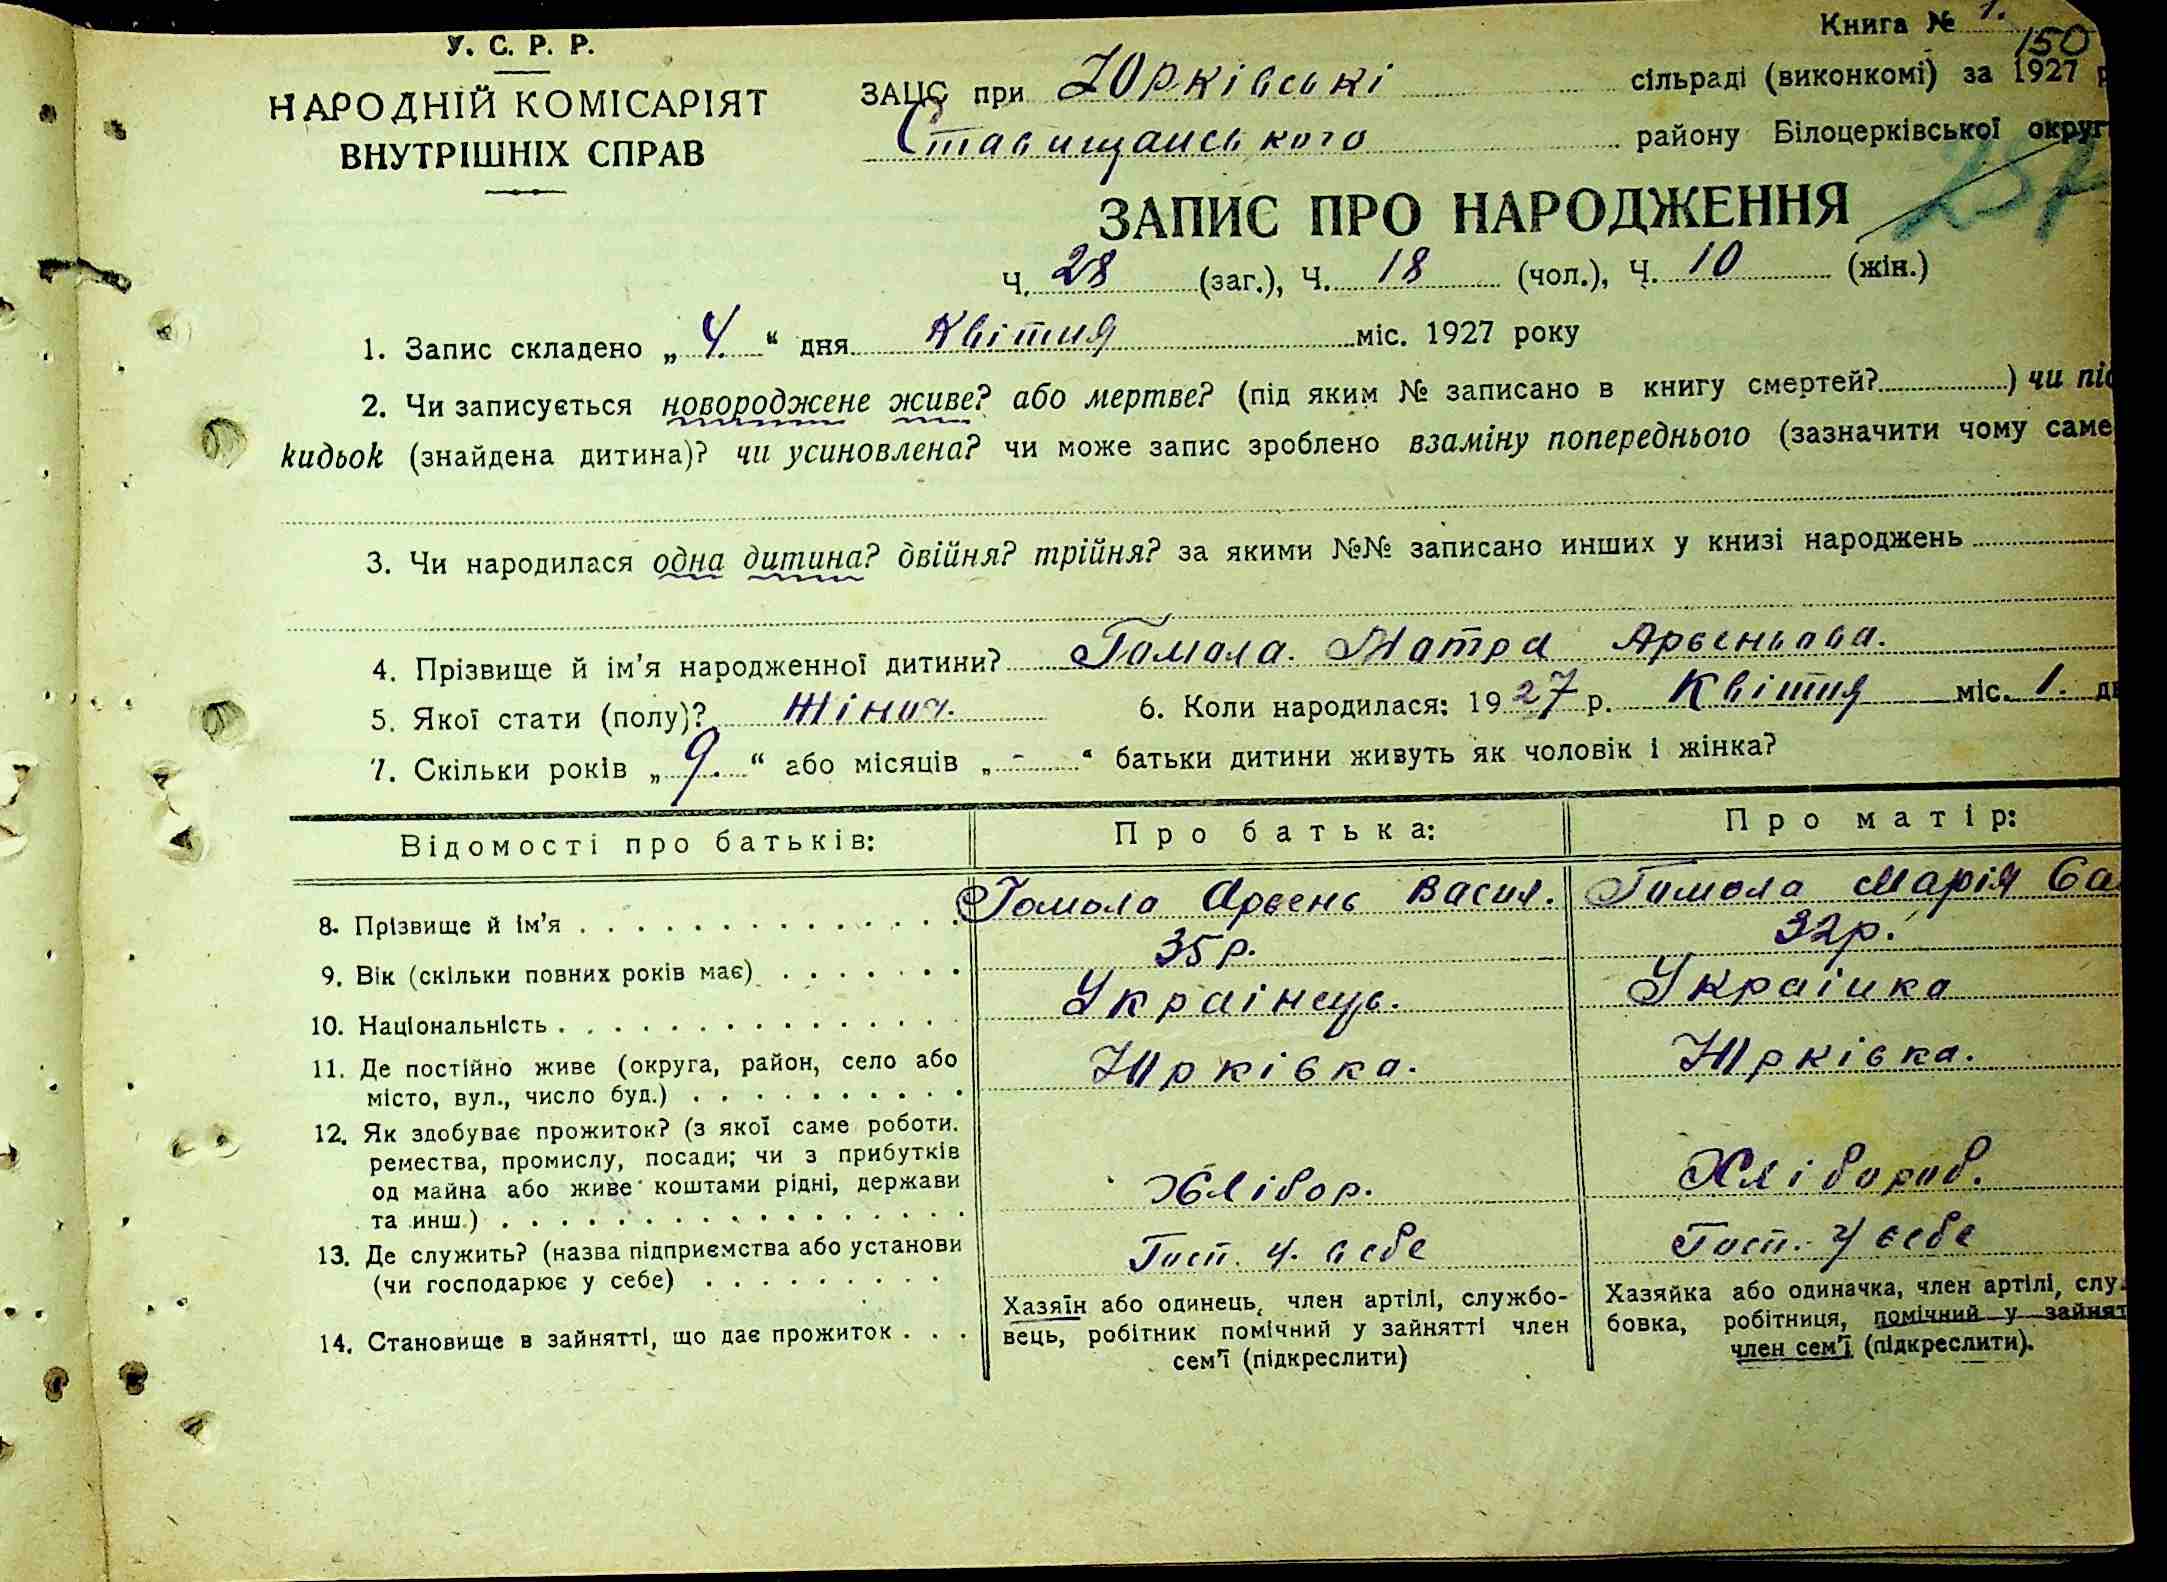 Книга № 1.
150
У. С. Р. Р.
НАРОДНІЙ КОМІСАРІЯТ
ВНУТРІШНІХ СПРАВ
ЗАЦС при Юрківські сільраді (виконкомі) за 1927 р
Ставищанського району Білоцерківської округ
257
ЗАПИС ПРО НАРОДЖЕННЯ
Ч. 28 (заг.), Ч. 18 (чол.), Ч. 10 (жін.)
1. Запис складено „ 4. “ дня Квітня міс. 1927 року
2. Чи записується новороджене живе? або мертве? (під яким № записано в книгу смертей? ) чи під
кидьок (знайдена дитина)? чи усиновлена? чи може запис зроблено взаміну попереднього (зазначити чому саме
3. Чи народилася одна дитина? двійня? трійня? за якими №№ записано инших у книзі народжень
4. Прізвище й ім’я народженної дитини? Гамала. Мотра Арсеньова.
5. Якої стати (полу)? Жіноч. 6. Коли народилася: 1927 р. Квітня міс. 1. д
7. Скільки років „ 9. “ або місяців „ - “ батьки дитини живуть як чоловік і жінка?
Відомості про батьків: Про батька: Про матір:
8. Прізвище й ім’я Гомола Арсень Васил. Гамола Марія Са
9. Вік (скільки повних років має) 35 р. 32 р.
10. Національність Українець. Українка
11. Де постійно живе (округа, район, село або
місто, вул., число буд.) Юрківка. Юрківка.
12. Як здобуває прожиток? (з якої саме роботи.
ремества, промислу, посади; чи з прибутків
од майна або живе коштами рідні, держави
та инш.) Хлібор. Хлібороб.
13. Де служить? (назва підприємства або установи
(чи господарює у себе) Госп. у. себе Госп. у себе
14. Становище в зайнятті, що дає прожиток
Хазяїн або одинець, член артілі, службо-
вець, робітник помічний у зайнятті член
сем’ї (підкреслити)
Хазяйка або одиначка, член артілі, слу
бовка, робітниця, помічний у зайнят
член сем’ї (підкреслити).